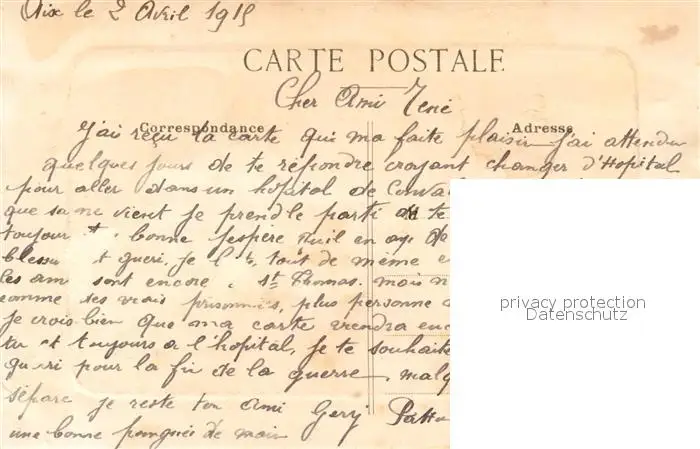 Aix le 2 Avril 1915
CARTE POSTALE
Cher Ami René
Correspondance
Adresse
J'ai reçu ta carte qui ma faite plaisir j'ai attendu
quelques jours de te répondre croyant changer d'Hopital
pour aller dans un hopital de
que sa ne vient je prend le parti de te
toujour bonne j'espère quil en
gueri. je tout de même
les am sont encore St Thomas. mais
comme des vrais prisonniés, plus personne
je crois bien que ma carte viendra
tu et toujours a l'hopital, je te souhaite
gueri pour la fin de la guerre malg
séparé je reste ton ami Gery
une bonne poignée de main
privacy protection
Datenschutz